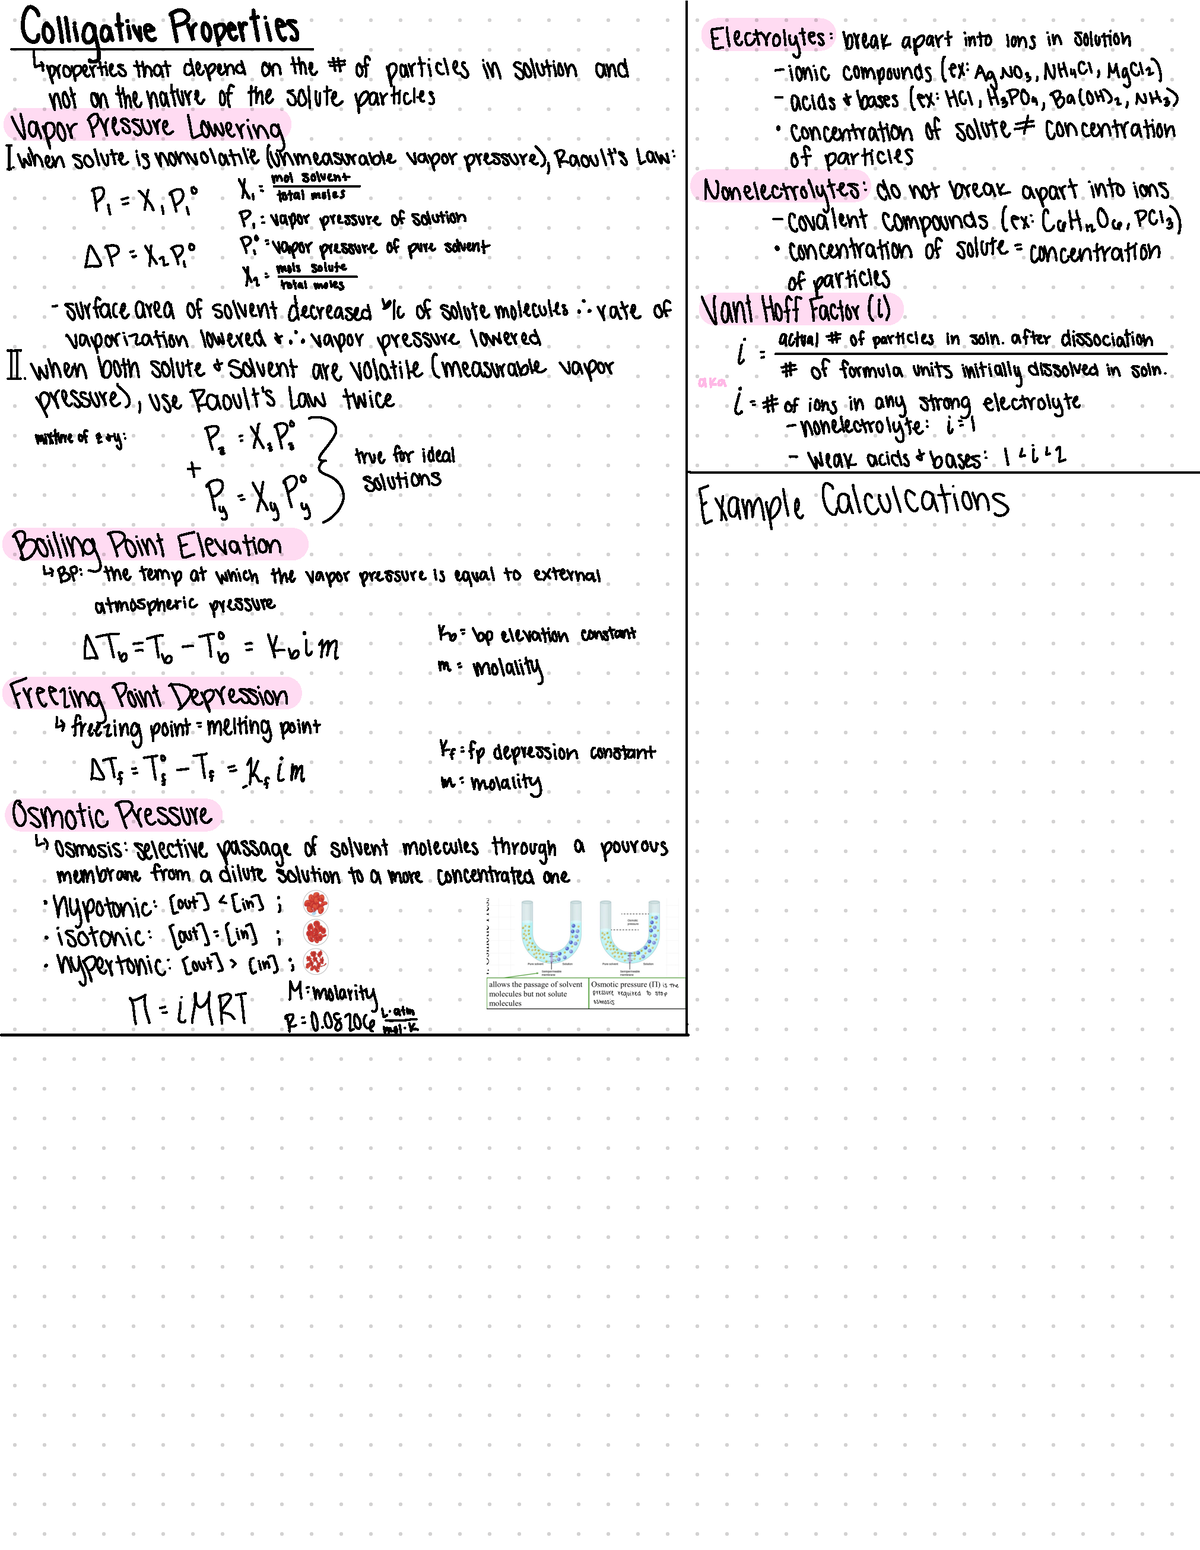 Colligative Properties
↳properties that depend on the # of particles in solution and
not on the nature of the solute particles
Vapor Pressure Lowering
I. when solute is nonvolatile (unmeasurable vapor pressure), Raoult's Law:
P₁ = X₁P₁°
X₁ = mol solvent / total moles
P₁: vapor pressure of solution
ΔP = X₂P₁°
P₁° = vapor pressure of pure solvent
X₂ = mols solute / total moles
- surface area of solvent decreased b/c of solute molecules ∴ rate of
vaporization lowered & ∴ vapor pressure lowered
II. when both solute & solvent are volatile (measurable vapor
pressure), use Raoult's Law twice
mixtue of z + y:
P_z = X_z P_z°
+
P_y = X_y P_y°
true for ideal
solutions
Boiling Point Elevation
↳ BP: the temp at which the vapor pressure is equal to external
atmospheric pressure
ΔT_b = T_b - T_b° = K_b i m
K_b = bp elevation constant
m = molality
Freezing Point Depression
↳ freezing point = melting point
ΔT_f = T_f° - T_f = K_f i m
K_f = fp depression constant
m = molality
Osmotic Pressure
↳ osmosis: selective passage of solvent molecules through a pourous
membrane from a dilute solution to a more concentrated one
• hypotonic: [out] < [in] ;
• isotonic: [out] = [in] ;
• hypertonic: [out] > [in] ;
Π = iMRT
M = molarity
R = 0.08206 L·atm / mol·K
allows the passage of solvent
molecules but not solute
molecules
Osmotic pressure (Π) is the
pressure required to stop
osmosis
Electrolytes: break apart into ions in solution
- ionic compounds (ex: AgNO₃, NH₄Cl, MgCl₂)
- acids & bases (ex: HCl, H₃PO₄, Ba(OH)₂, NH₃)
• concentration of solute ≠ concentration
of particles
Nonelectrolytes: do not break apart into ions
- covalent compounds (ex: C₆H₁₂O₆, PCl₃)
• concentration of solute = concentration
of particles
Vant Hoff Factor (i)
i = actual # of particles in soln. after dissociation / # of formula units initially dissolved in soln.
aka
i = # of ions in any strong electrolyte
- nonelectrolyte: i = 1
- weak acids & bases: 1 < i < 2
Example Calculcations